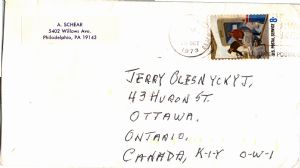 A. SCHEAR
5402 Willows Ave.
Philadelphia, PA 19143
1973
U.S. POSTAL SERVICE 8c
JERRY OLESNYCKYJ,
43 HURON ST.
OTTAWA.
ONTARIO,
CANADA, K-1-Y O-W-1